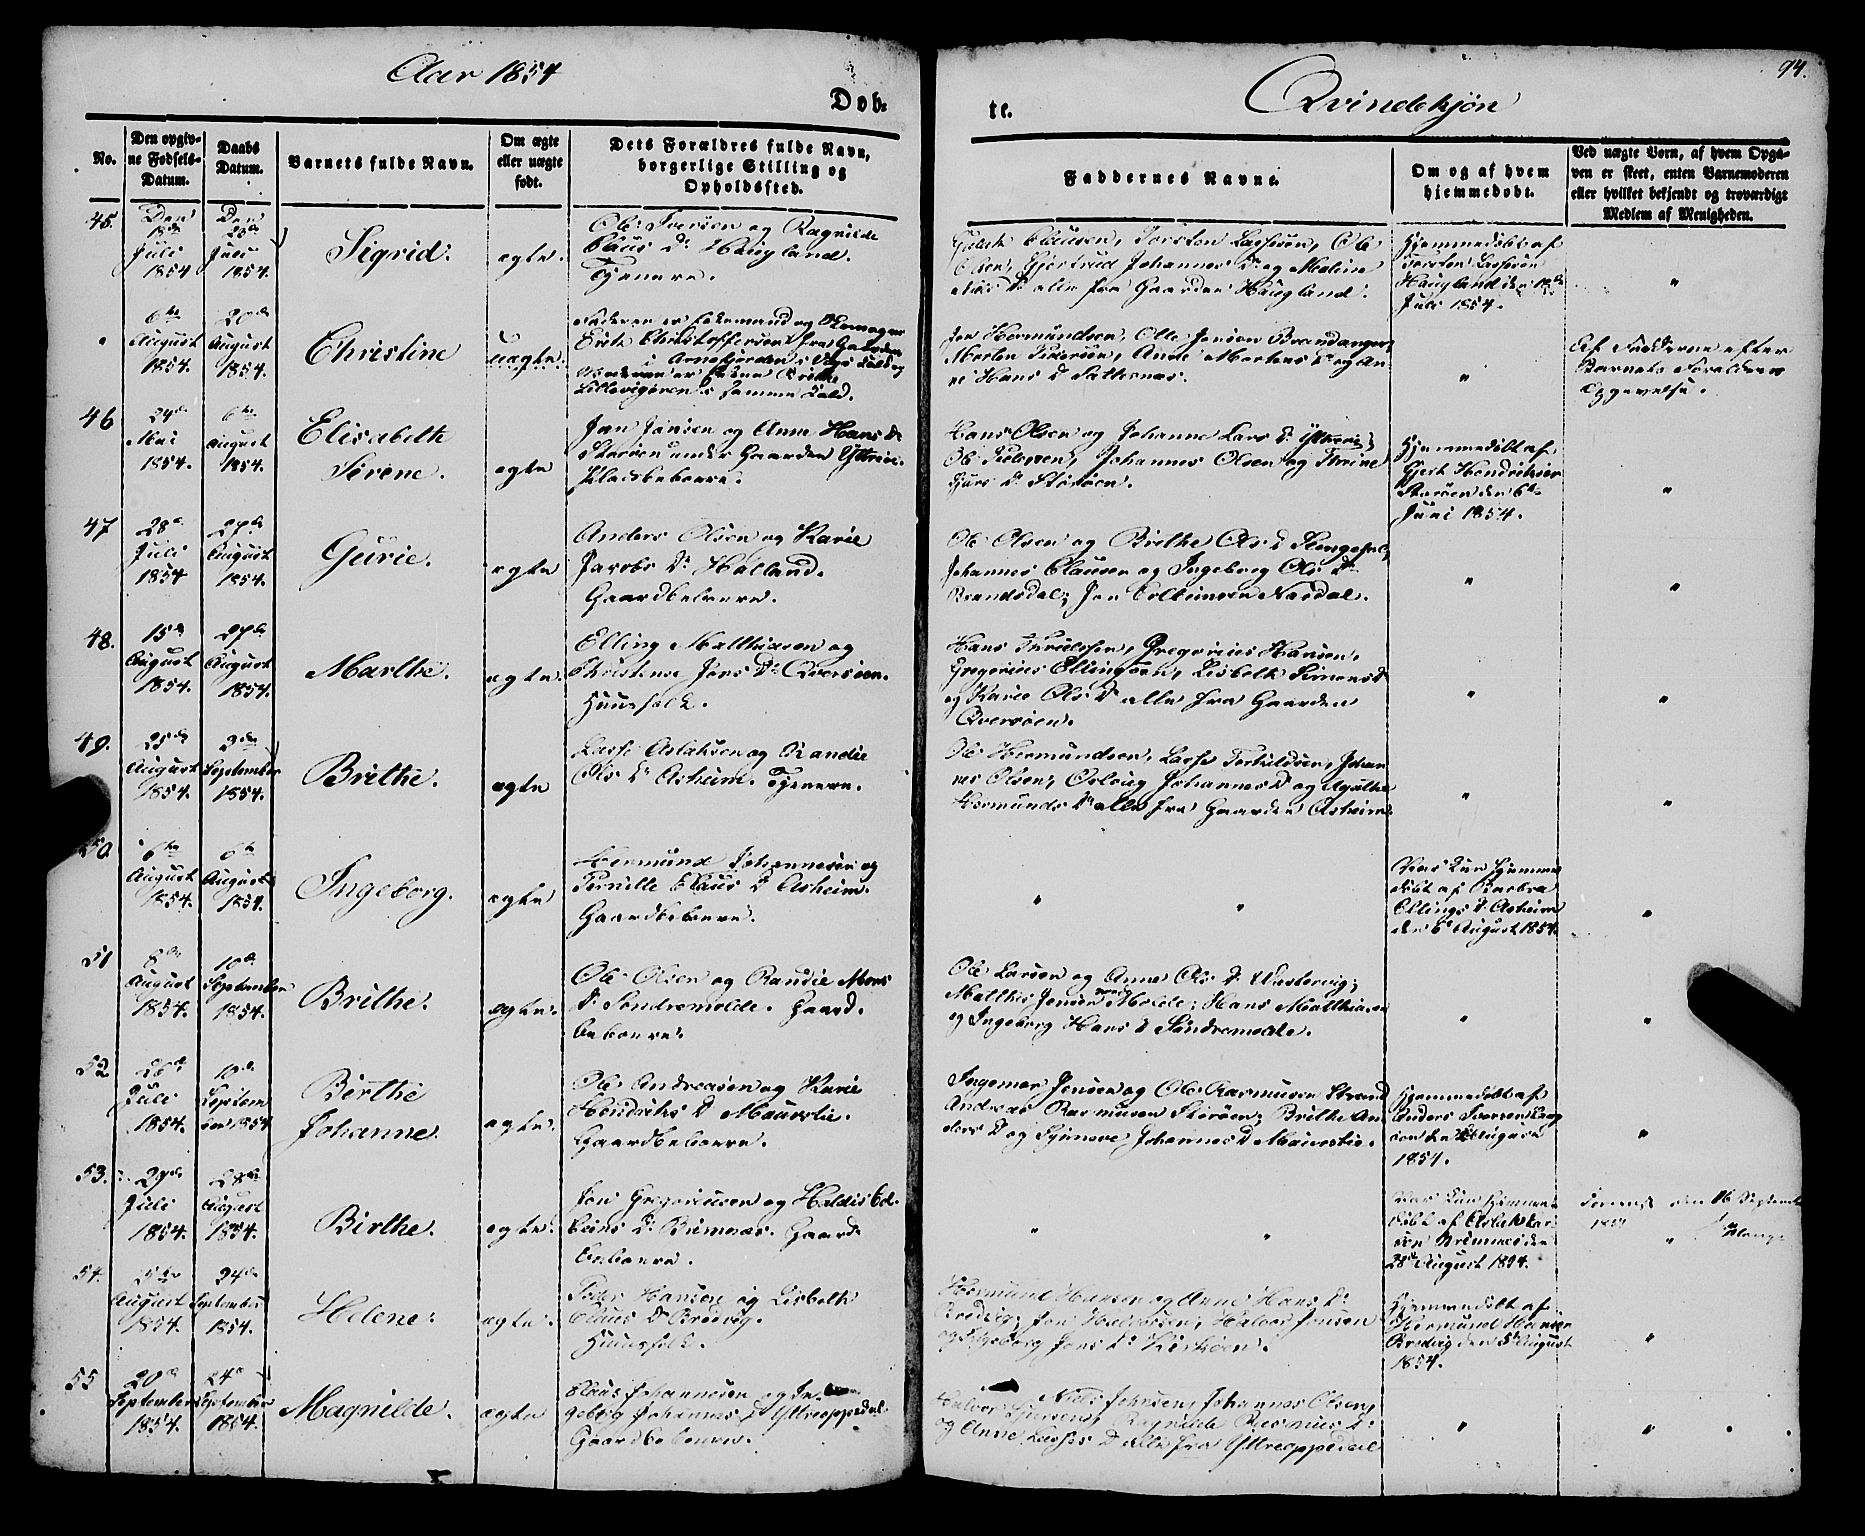 Aar 1854
Qvindekjøn
94.
Døb-
te.
No.
Den opgiv-
ne Fødsels-
Datum.
Daabs
Datum.
Barnets fulde Navn.
Om ægte
eller uægte
født.
Dets Forældres fulde Navn,
borgerlige Stilling og
Opholdssted.
Faddernes Navne.
Om og af hvem
hjemmedøbt.
Ved uægte Børn, af hvem Opga-
ven er skeet, enten Barnemoderen
eller hvilket bekjendt og troværdigt
Medlem af Menigheden.
45.
Den
18de
Juli
1854
Den
1854.
Sigrid.
ægte.
Ole Iversen og Ragnilde
Claus Dr Haugland.
Tjenere.
Clausen, Torsten Lassesøn, Ole
Olsen, Gjertrud Johannes Dr og Malene
Nils Dr alle fra Gaarden Haugland.
Hjemmedøbt af
Torsten Lassesøn
Haugland den
Juli 1854.
"
6te
August
1854.
August
1854.
Christine
uægte.
Faderen er
Erik Christoffersen fra Gaarden
i Arnefjorden
Moderen er
i samme
Jon Hermundsen, Olle Jensen Brandanger,
Merten Iversøn, Anne Mertens Dr og An-
ne Hans Dr
"
Af Fadderne efter
Barnets Forældres
Opgivelse.
46
24de
Mai
1854.
6te
August
1854.
Elisabeth
Serene.
ægte
Jon Jonsen og Anne Hans Dr
under Gaarden Ytrevi.
Pladsbeboere.
Hans Olsen og Johanne Lars Dr
Ole Johannes Olsen og
Dr
Hjemmedøbt af
Gjert Hendriksen
den 6te
Juni 1854.
"
47
28de
Juli
1854
27de
August
1854.
Gurie.
ægte
Anders Olsen og Karie
Jacobs Dr Halland.
Gaardbeboere.
Ole Olsen og Brithe Ols Dr
Johannes Clausen og Ingeborg Ols Dr
Brandsdal; Jon Nardal.
"
"
48.
15de
August
1854.
27de
August
1854.
Marthe.
ægte.
Elling Matthiasen og
Christense Jens Dr Qversøen.
Huusfolk.
Hans Gregorius Hansen,
Gregorius Ellingsøn, Lisbeth Simons Dr
og Karie Ols Dr alle fra Gaarden
Qversøen.
"
"
49.
25de
August
1854.
September
1854.
Brithe.
ægte
Lasse Aslaksen og Randie
Ols Dr Asheim. Tjenere.
Ole Hermundsen, Lasse Torkildsen, Johan-
nes Olsen, Oslaug Johannes Dr og Agathe
Hermunds Dr alle fra Gaarden Asheim.
"
"
50.
6te
August
1854.
6te
August
1854.
Ingeborg.
ægte
Hermund Johannesen og
Pernille Claus Dr Asheim.
Gaardbeboere.
"
"
Var kun hjemme-
døbt af Barbra
Ellings Dr Asheim
den 6te August 1854.
"
51
8de
August
1854.
10de
September
1854.
Brithe.
ægte.
Ole Olsen og Randie Mons
Dr Søndremolde. Gaard-
beboere.
Ole Larsen og Anne Ols Dr
Matthis Jensen Molde; Hans Matthiasen
og Ingeborg Hans Dr Søndremolde.
"
"
52
26de
Juli
1854.
10de
Septem-
ber 1854
Birthe
Johanne.
ægte.
Ole Andreasen og Karie
Hendriks Dr Maurstie.
Gaardbeboere.
Ingemar Jensen og Ole Rasmusen Strand
Andreas Rasmusen Brithe An-
ders Dr og Synneve Johannes Dr Maurstie.
Hjemmedøbt af
Anders Iversen
August
1854.
"
53.
27de
Juli
1854.
28de
August
1854.
Birthe.
ægte.
Jon Gregoriusen og Haldis Col-
beins Dr Bremnes. Gaard-
beboere.
"
"
Var kun hjemme-
døbt af Aslak Lar-
sen Bremnes den
28de August 1854.
den 16 September
"
54.
5te
August
1854.
24de
September
1854.
Helene.
ægte.
Peder Hansen og Lisbeth
Claus Dr Bredvig.
Huusfolk.
Hermund Hansen og Anne Hans Dr
Bredvig; Jon Halvorsen, Halvor Jensen
og Ingeborg Jons Dr
Hjemmedøbt af
Hermund Hansen
Bredvig den 5te August
1854.
"
55
20de
September
1854.
24de
September
1854.
Magnilde.
ægte
Claus Johannesen og In-
geborg Johannes Dr Yttreoppedal.
Gaardbeboere.
Nils Johnsen, Johannes Olsen,
Halvor Ragnilde Rasmus Dr
og Anne Lasses Dr alle fra Yttreoppedal
"
"